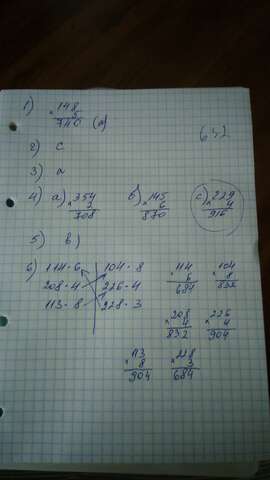 1) 148
× 5
740 (a)
(632)
2) c
3) a
4) a) × 354
2
708
b) × 145
6
870
c) × 229
4
916
5) b)
6) 114·6 104·8
208·4 226·4
113·8 228·3
× 114
6
684
× 104
8
832
× 208
4
832
× 226
4
904
× 113
8
904
× 228
3
684